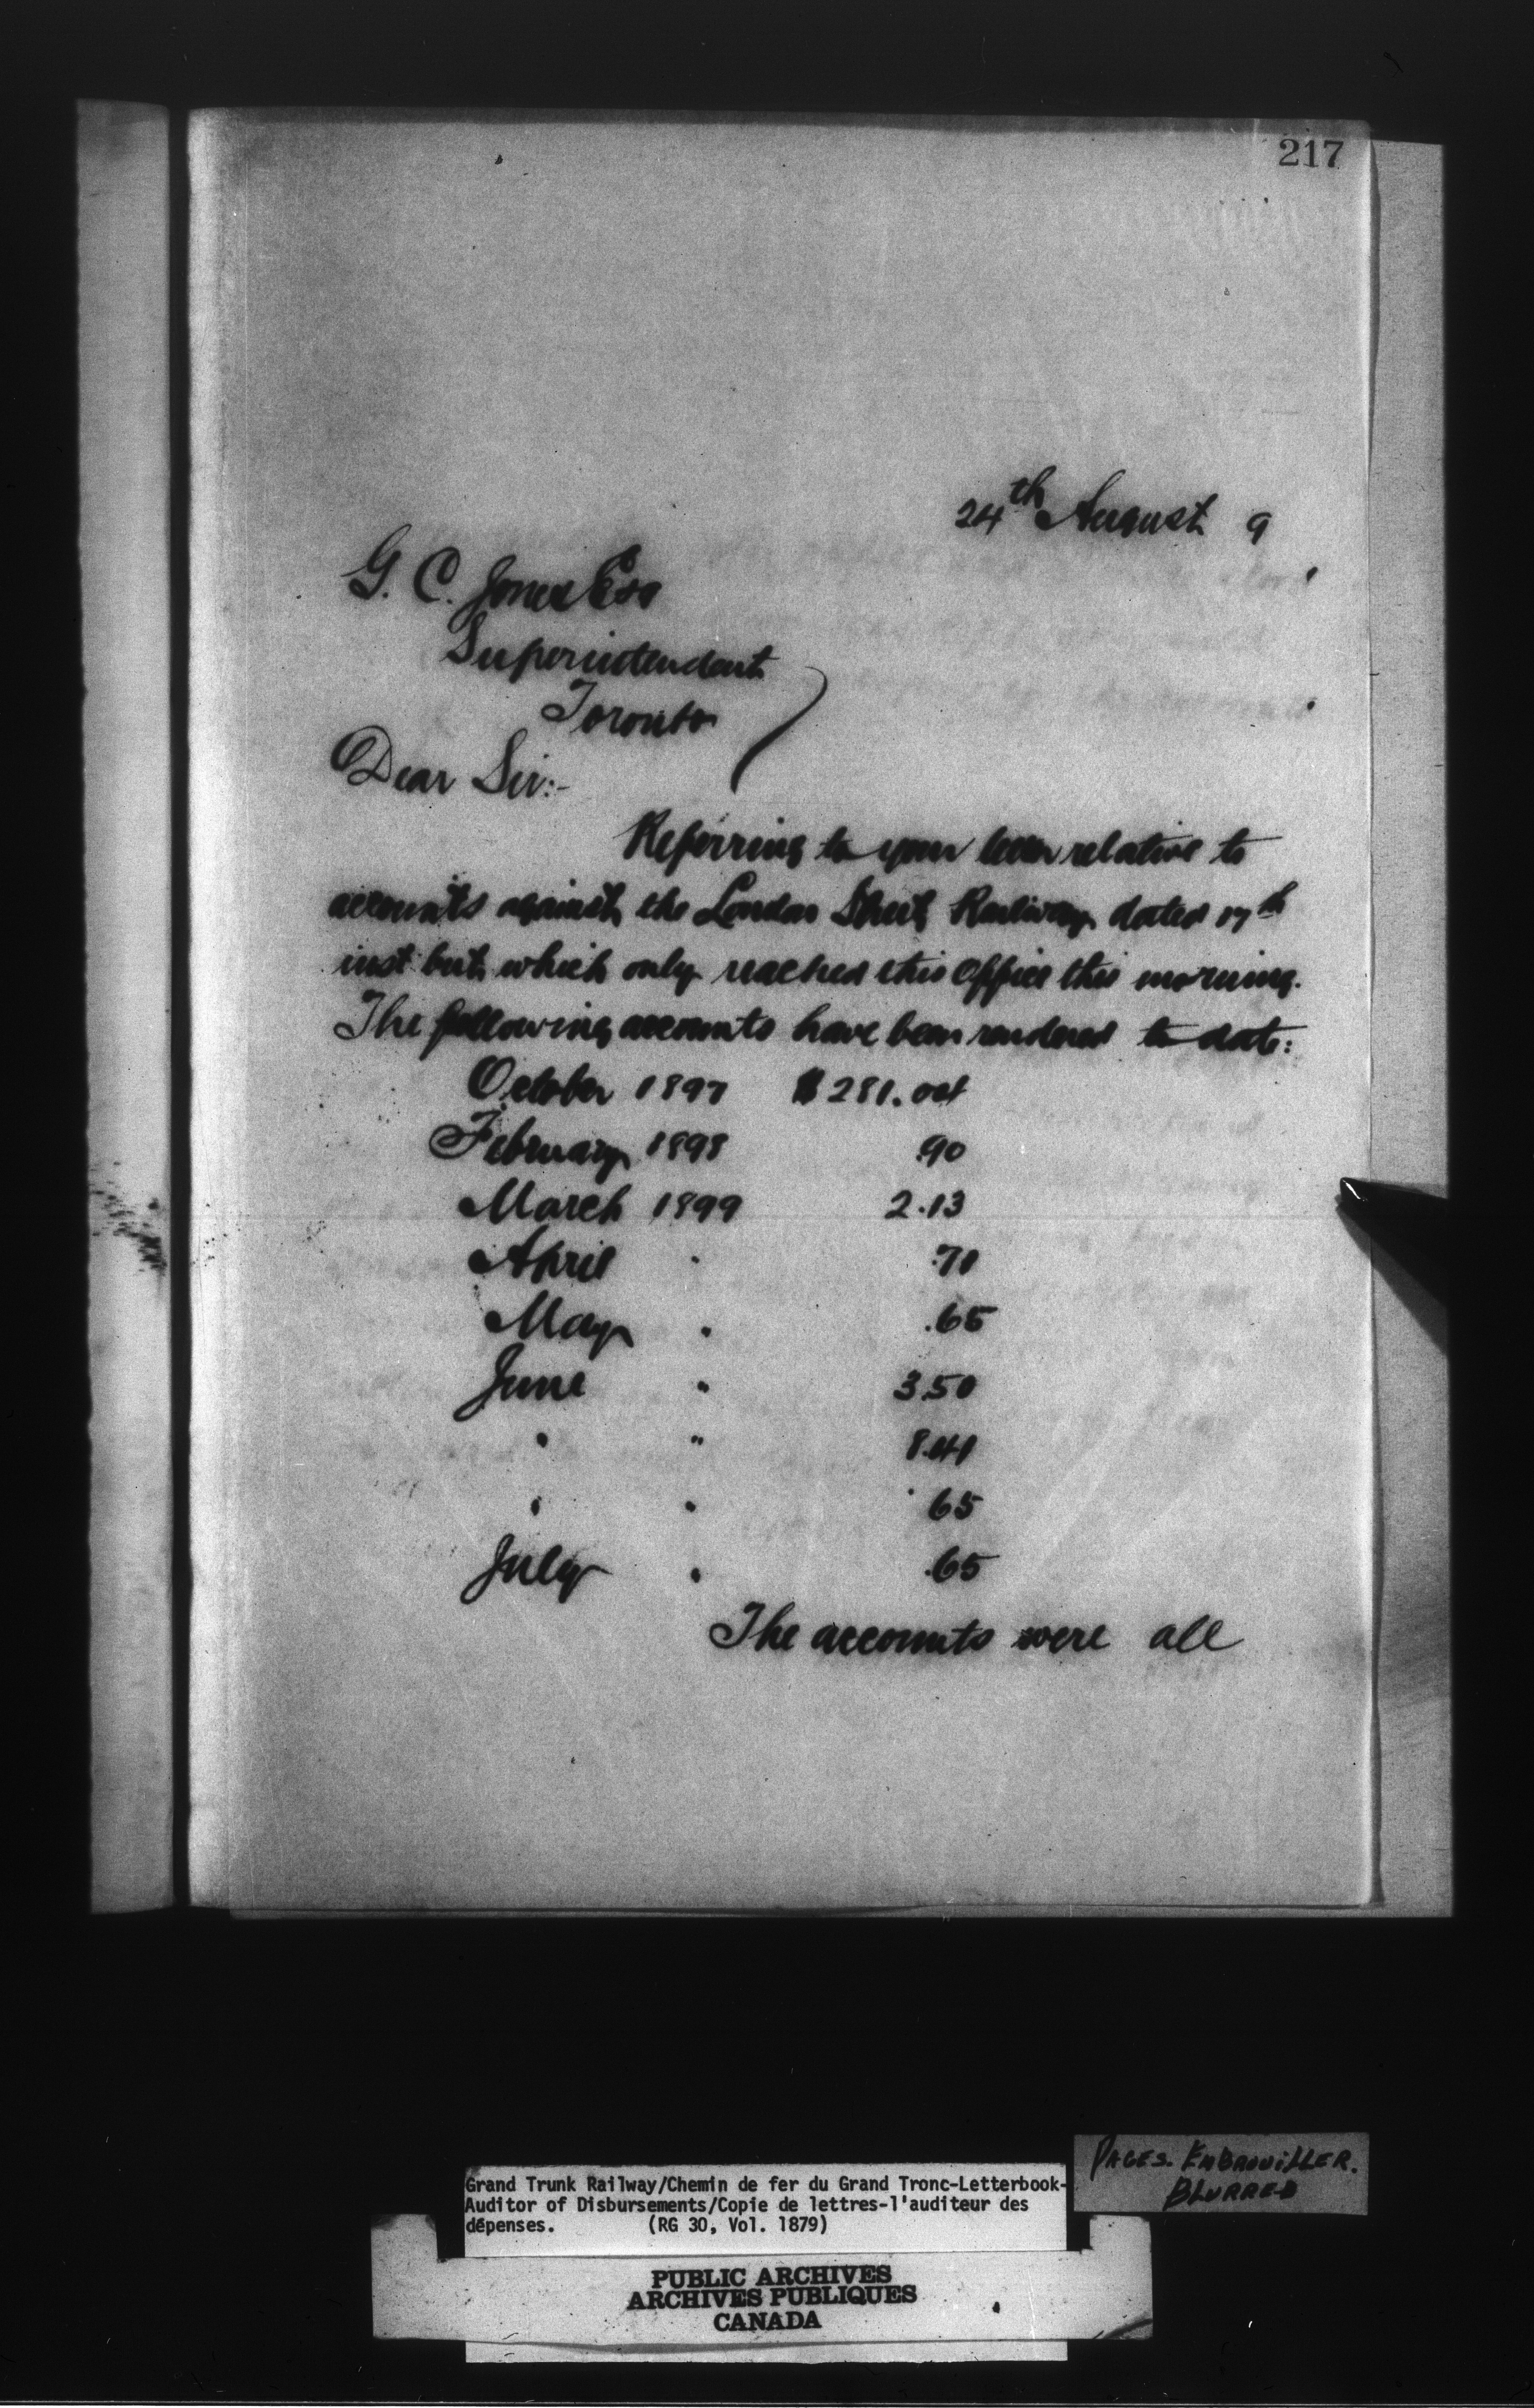 217
24th August 9
G. C. Jones Esq
Superintendent
Toronto
Dear Sir:-
Referring to your letter relative to
accounts against the London Street Railway dated 17th
inst but which only reached this office this morning.
The following accounts have been rendered to date:
October 1897 $281.04
February 1898 .90
March 1899 2.13
April " .70
May " .65
June " 3.50
" " 8.41
" " .65
July " .65
The accounts were all
PAGES. EMBROUILLER.
BLURRED
Grand Trunk Railway/Chemin de fer du Grand Tronc-Letterbook-
Auditor of Disbursements/Copie de lettres-l'auditeur des
dépenses. (RG 30, Vol. 1879)
PUBLIC ARCHIVES
ARCHIVES PUBLIQUES
CANADA